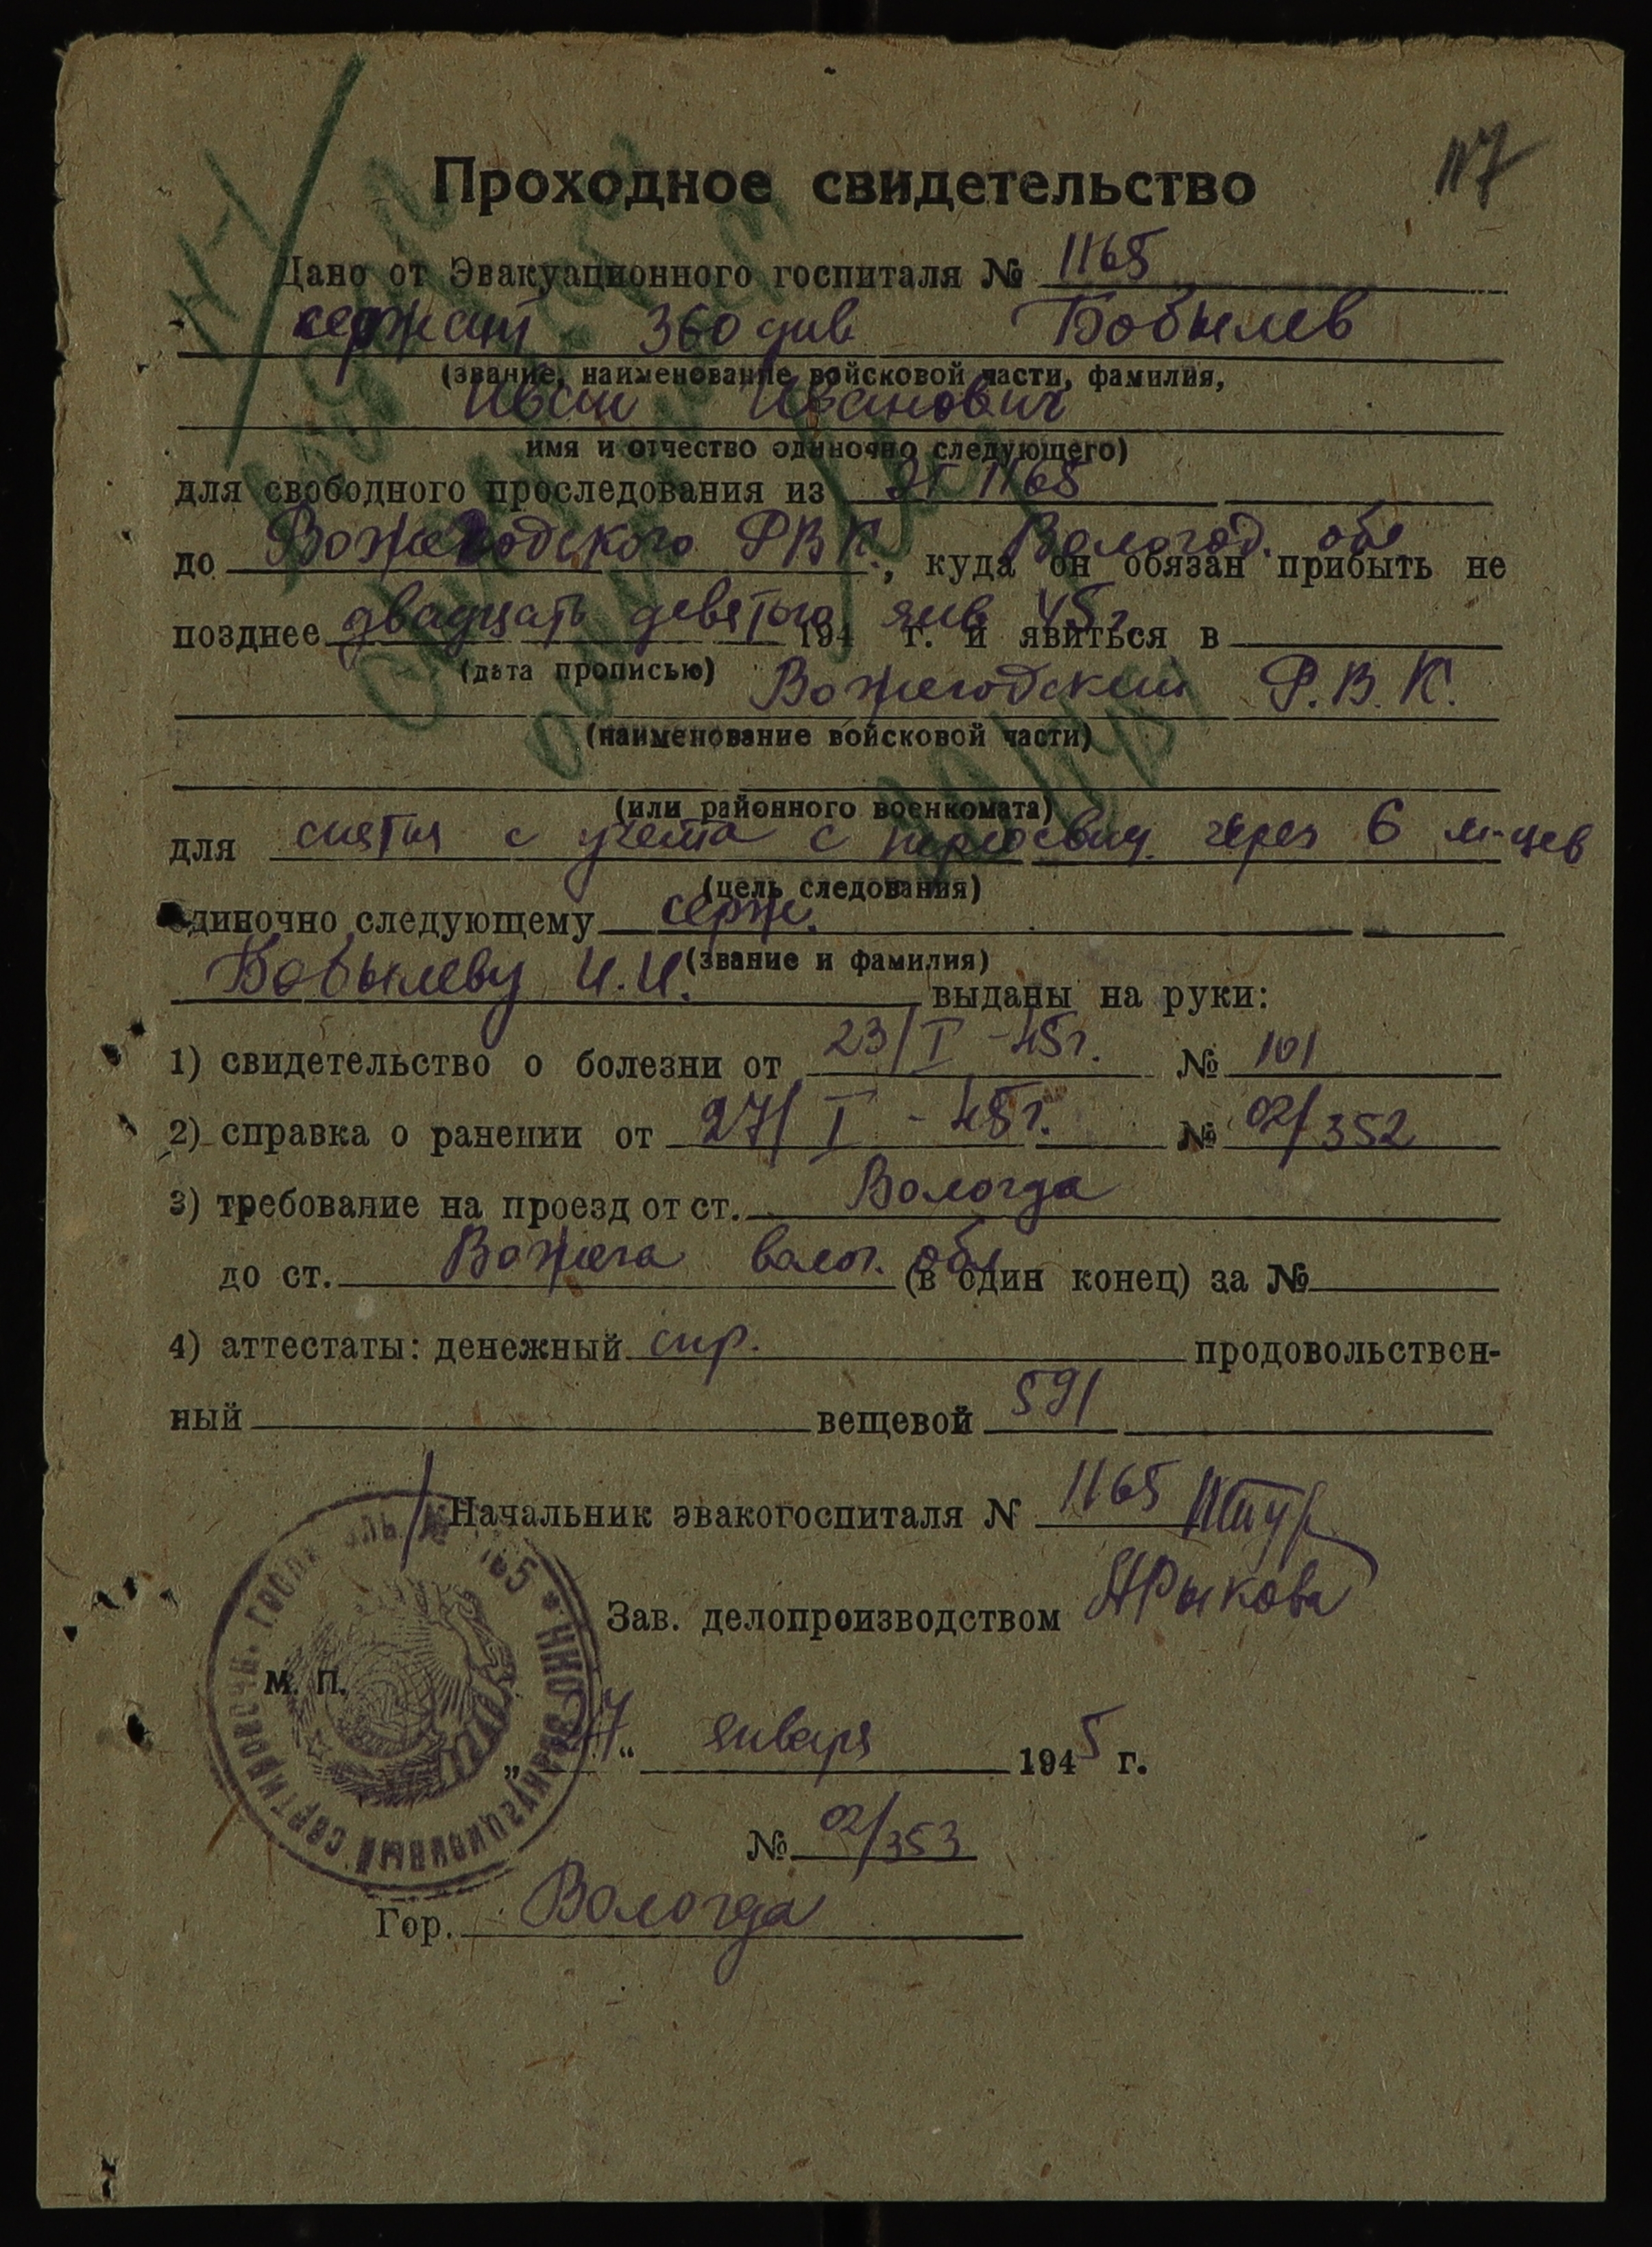 117
Проходное свидетельство
Дано от Эвакуационного госпиталя № 1165
сержант 360 див Бобылев
(звание, наименование войсковой части, фамилия,
Иван Иванович
имя и отчество одиночно следующего)
для свободного проследования из ЭГ 1165
до Вожегодского РВК Вологод. обл
, куда он обязан прибыть не
позднее двадцать девятого янв 45 г 194 г. и явиться в
(дата прописью)
Вожегодский Р.В.К.
(наименование войсковой части)
(или районного военкомата)
для снятия с учета с переосвид. через 6 м-цев
(цель следования)
одиночно следующему серж.
(звание и фамилия)
Бобылеву И.И. выданы на руки:
1) свидетельство о болезни от 23/I-45г. № 101
2) справка о ранении от 27/I-45г. № 02/352
3) требование на проезд от ст. Вологда
до ст. Вожега волог. обл (в один конец) за №
4) аттестаты: денежный спр. продовольствен-
ный вещевой 591
Начальник эвакогоспиталя N 1165
Зав. делопроизводством НРыкова
М. П.
„27“ января 1945 г.
№ 02/353
Гор. Вологда